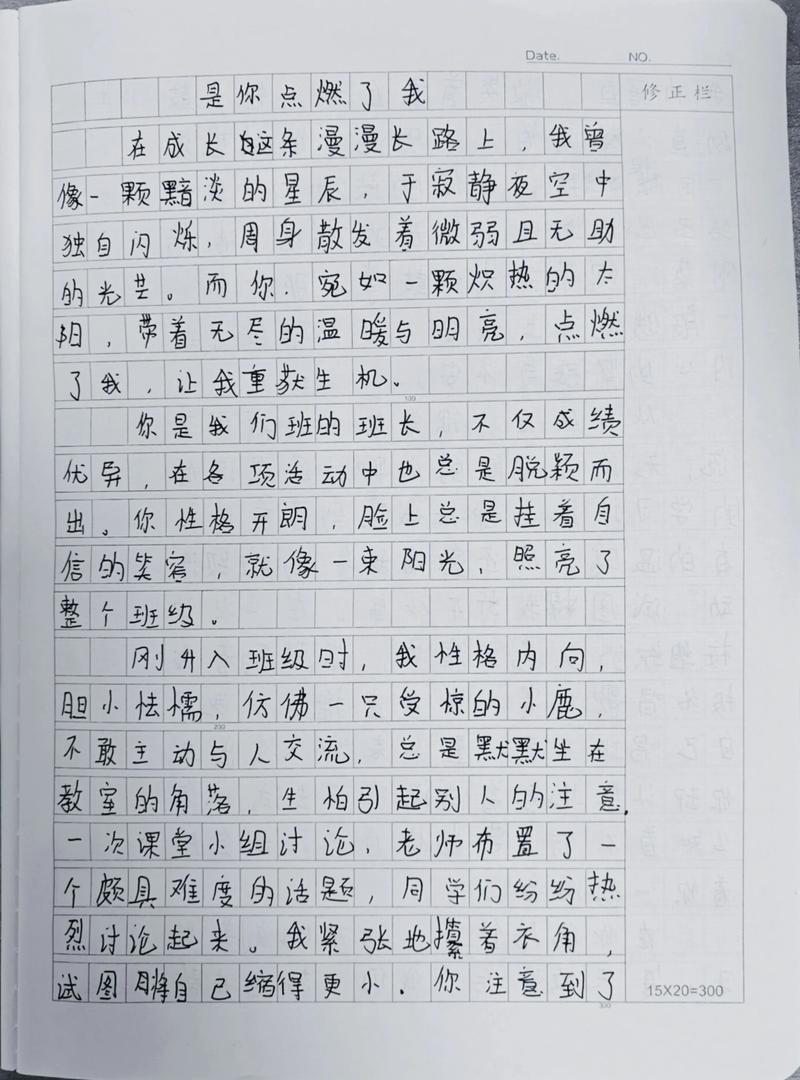 Date. NO.
是你点燃了我
修正栏
在成长这条漫漫长路上，我曾
像一颗黯淡的星辰，于寂静夜空中
独自闪烁，周身散发着微弱且无助
的光芒。而你，宛如一颗炽热的太
阳，带着无尽的温暖与明亮，点燃
了我，让我重获生机。
100
你是我们班的班长，不仅成绩
优异，在各项活动中也总是脱颖而
出。你性格开朗，脸上总是挂着自
信的笑容，就像一束阳光，照亮了
整个班级。
刚升入班级时，我性格内向，
胆小怯懦，仿佛一只受惊的小鹿，
200
不敢主动与人交流，总是默默坐在
教室的角落，生怕引起别人的注意.
一次课堂小组讨论，老师布置了一
个颇具难度的话题，同学们纷纷热
烈讨论起来。我紧张地攥着衣角，
试图将自己缩得更小.你注意到了
15X20=300
300